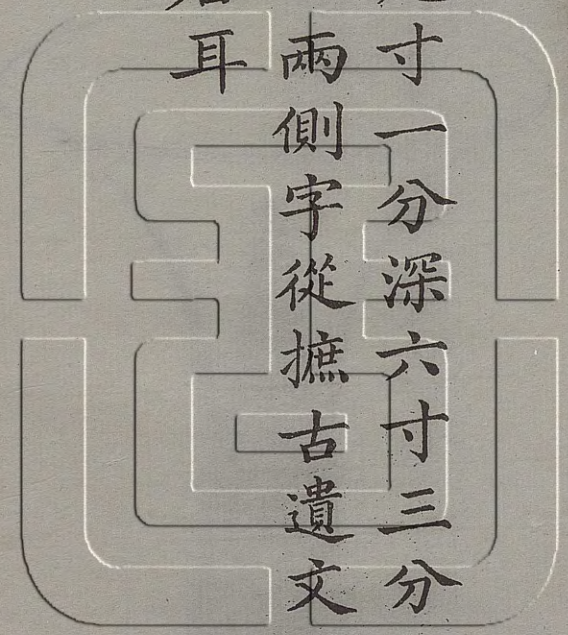 寸一分深六寸三分
兩側字從摭古遺文
耳